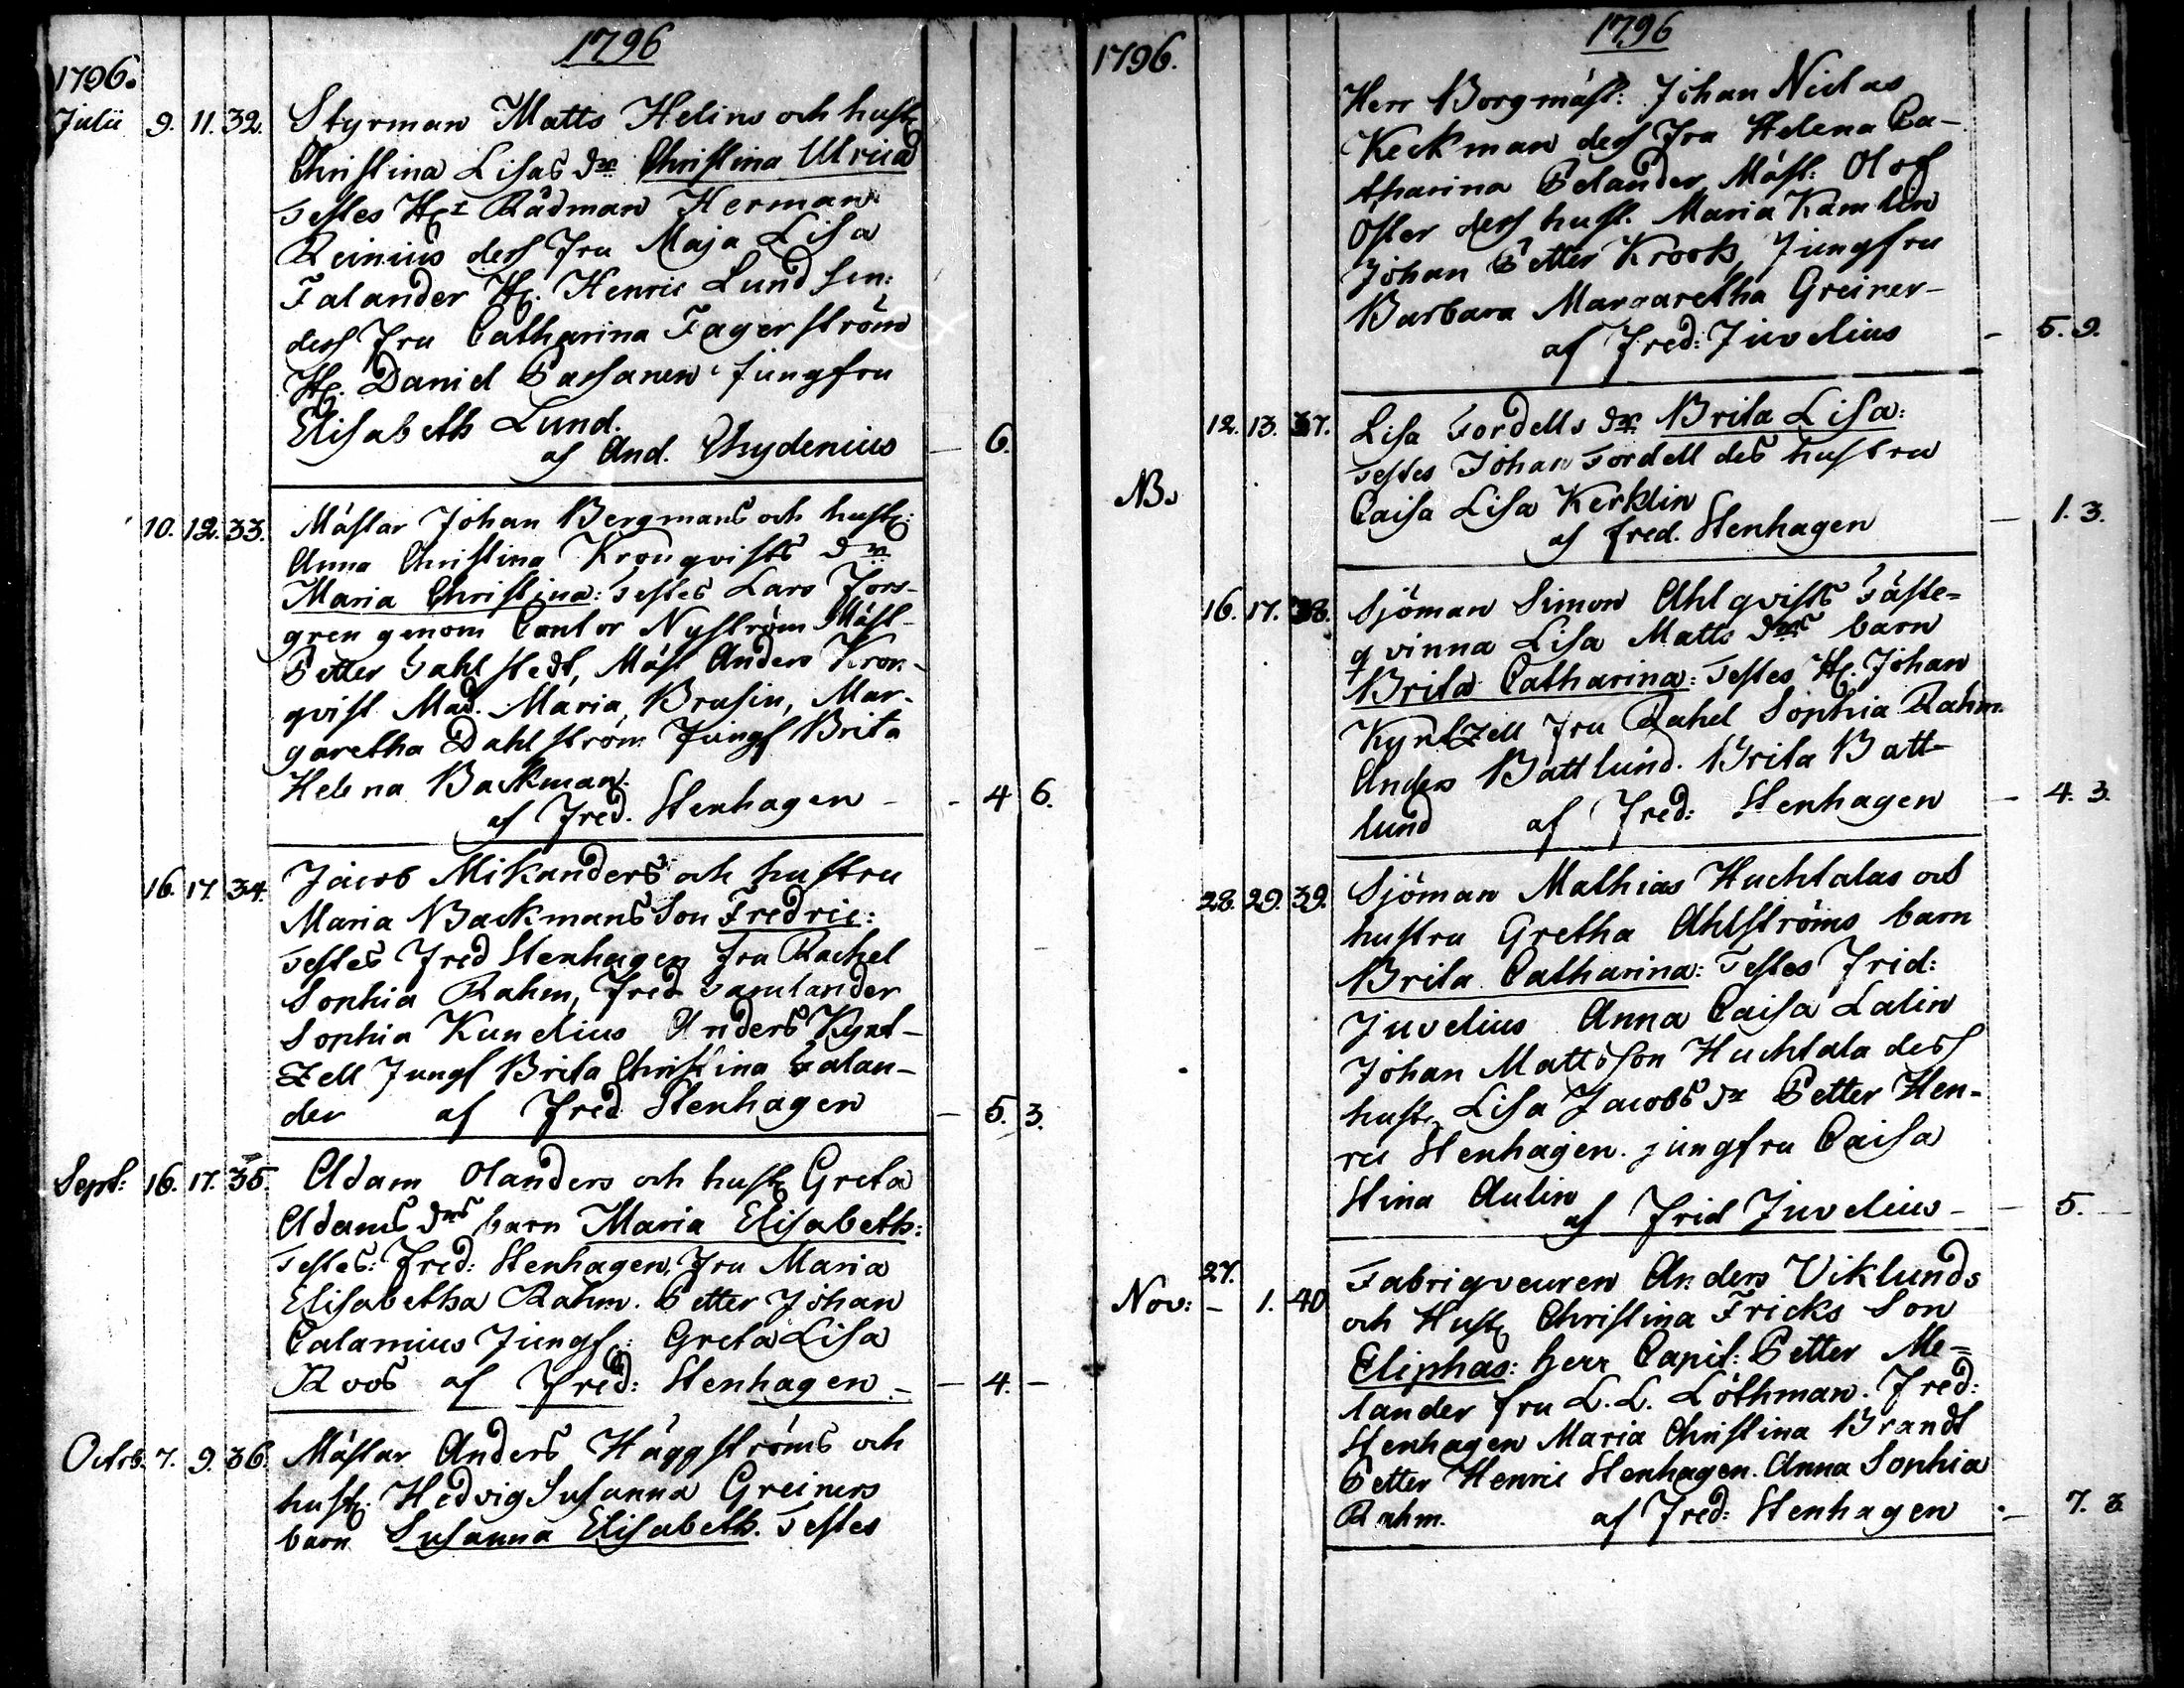 1796
1796.
Julii 9. 11. 32. Styrman Matts Helins och hust
Christina Lisas dr Christina Ulrica
Testes Hr Rådman Herman
Reinius dess fru Maja Lisa
Falander H. Henric Lund sen:
dess fru Catharina Fagerström
H. Daniel Passanen Jungfru
Elisabeth Lund.
af And. Chydenius — 6.
10. 12. 33. Mästar Johan Bergmans och hust:
Anna Christina Kronqvists dr
Maria Christina: Testes Lars Fors-
gren genom Cantor Nyström Mäst-
Petter Sahlstedt, Mäst Anders Kron-
qvist Mad. Maria Brusin, Mar-
garetha Dahlström Jungf Brita
Helena Backman.
af Fred. Stenhagen — 4 6.
16. 17. 34. Jacob Mikanders och hustru
Maria Backmans Son Fredric:
Testes Fred Stenhagen fru Rachel
Sophia Rahm, Fred Samlander
Sophia Kunelius Anders Kynt-
zell Jungf Brita Christina Falan-
der af Fred Stenhagen — 5. 3.
Sept: 16. 17. 35. Adam Olanders och hust Greta
Adams drs barn Maria Elisabeth:
Testes: Fred: Stenhagen, Fru Maria
Elisabetha Rahm. Petter Johan
Calamnius Jungf: Greta Lisa
Roos af Fred: Stenhagen. — 4. —
Octob. 7. 9. 36. Mästar Anders Häggströms och
hust. Hedvig Susanna Greiners
barn Susanna Elisabeth. Testes
1796
1796.
Herr Borgmäst: Johan Niclas
Keckman dess fru Helena Ca-
tharina Pelander, Mäst: Olof
Oster dess hust. Maria Kamlin
Johan Petter Krook, Jungfru
Barbara Margaretha Greiner-
af Fred: Juvelius — 5. 9.
12. 13. 37. Lisa Fordells dr. Brita Lisa:
Testes Johan Fordell des hustru
NB. Caisa Lisa Kerklin
af Fred. Stenhagen — 1. 3.
16. 17. 38. Sjöman Simon Ahlqvists Fäste=
qvinna Lisa Matts drs barn
Brita Catharina: Testes H. Johan
Kyntzell fru Rahel Sophia Rahm.
Anders Battlund. Brita Batt-
lund af Fred: Stenhagen — 4. 3.
28. 29. 39. Sjöman Mathias Huchtalas och
hustru Gretha Ahlströms barn
Brita Catharina: Testes Frid:
Juvelius Anna Caisa Lalin
Johan Mattsson Huchtala dess
hust Lisa Jacobs dr Petter Hen-
ric Stenhagen. jungfru Caisa
Stina Aulin
af Frid Juvelius — 5. —
Nov: 27. — 1. 40 Fabriqveuren Anders Viklunds
och Hust Christina Fricks Son
Eliphas: herr Capit: Petter Me=
lander fru L. L. Löthman. Fred:
Stenhagen Maria Christina Brandt
Petter Henric Stenhagen. Anna Sophia
Rahm. af Fred: Stenhagen — 7. 3.